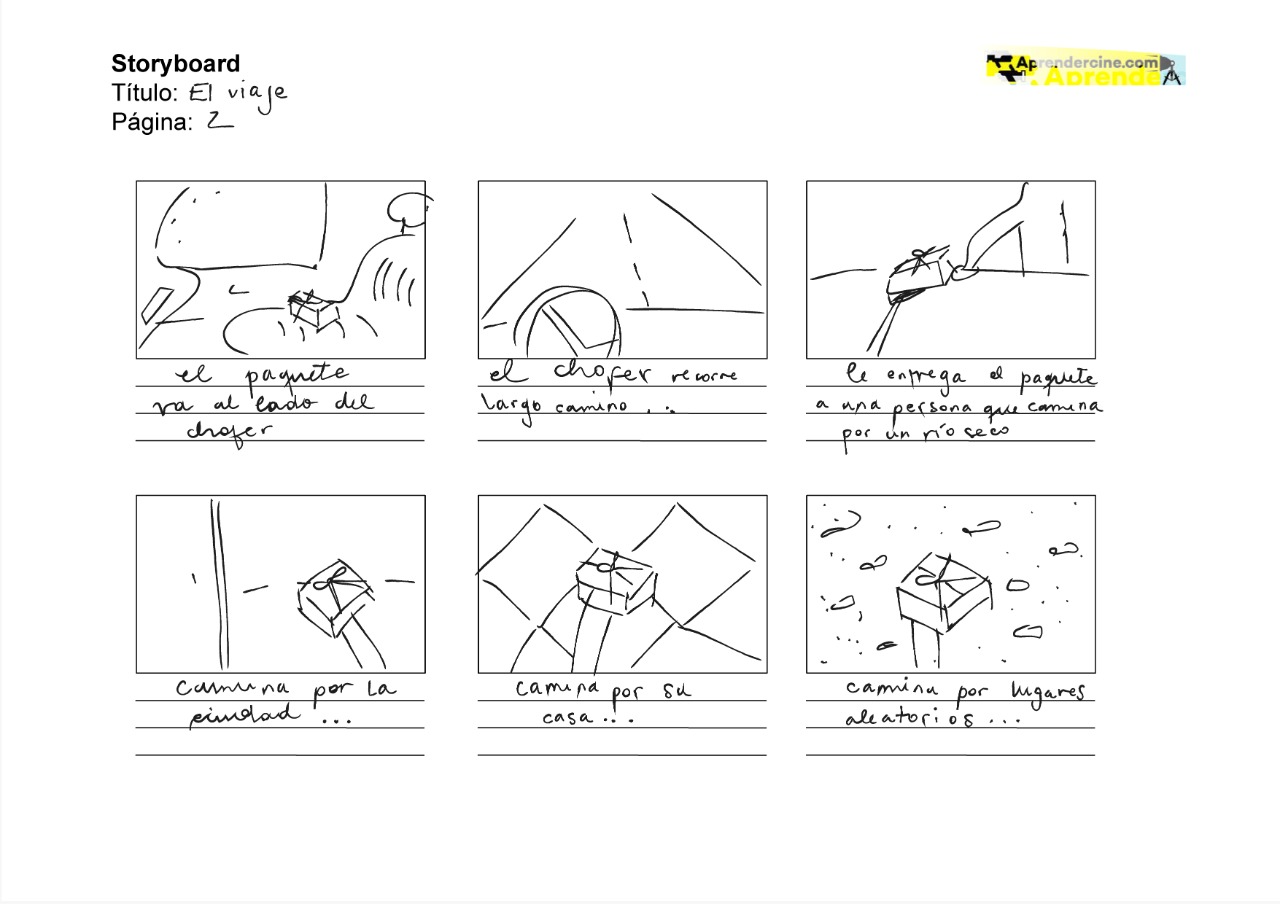 Storyboard
Título: El viaje
Página: 2
Aprendercine.com
Aprende
el paquete
va al lado del
chofer
el chofer recorre
largo camino...
le entrega el paquete
a una persona que camina
por un río seco
camina por la
ciudad ...
camina por su
casa ...
camina por lugares
aleatorios ...